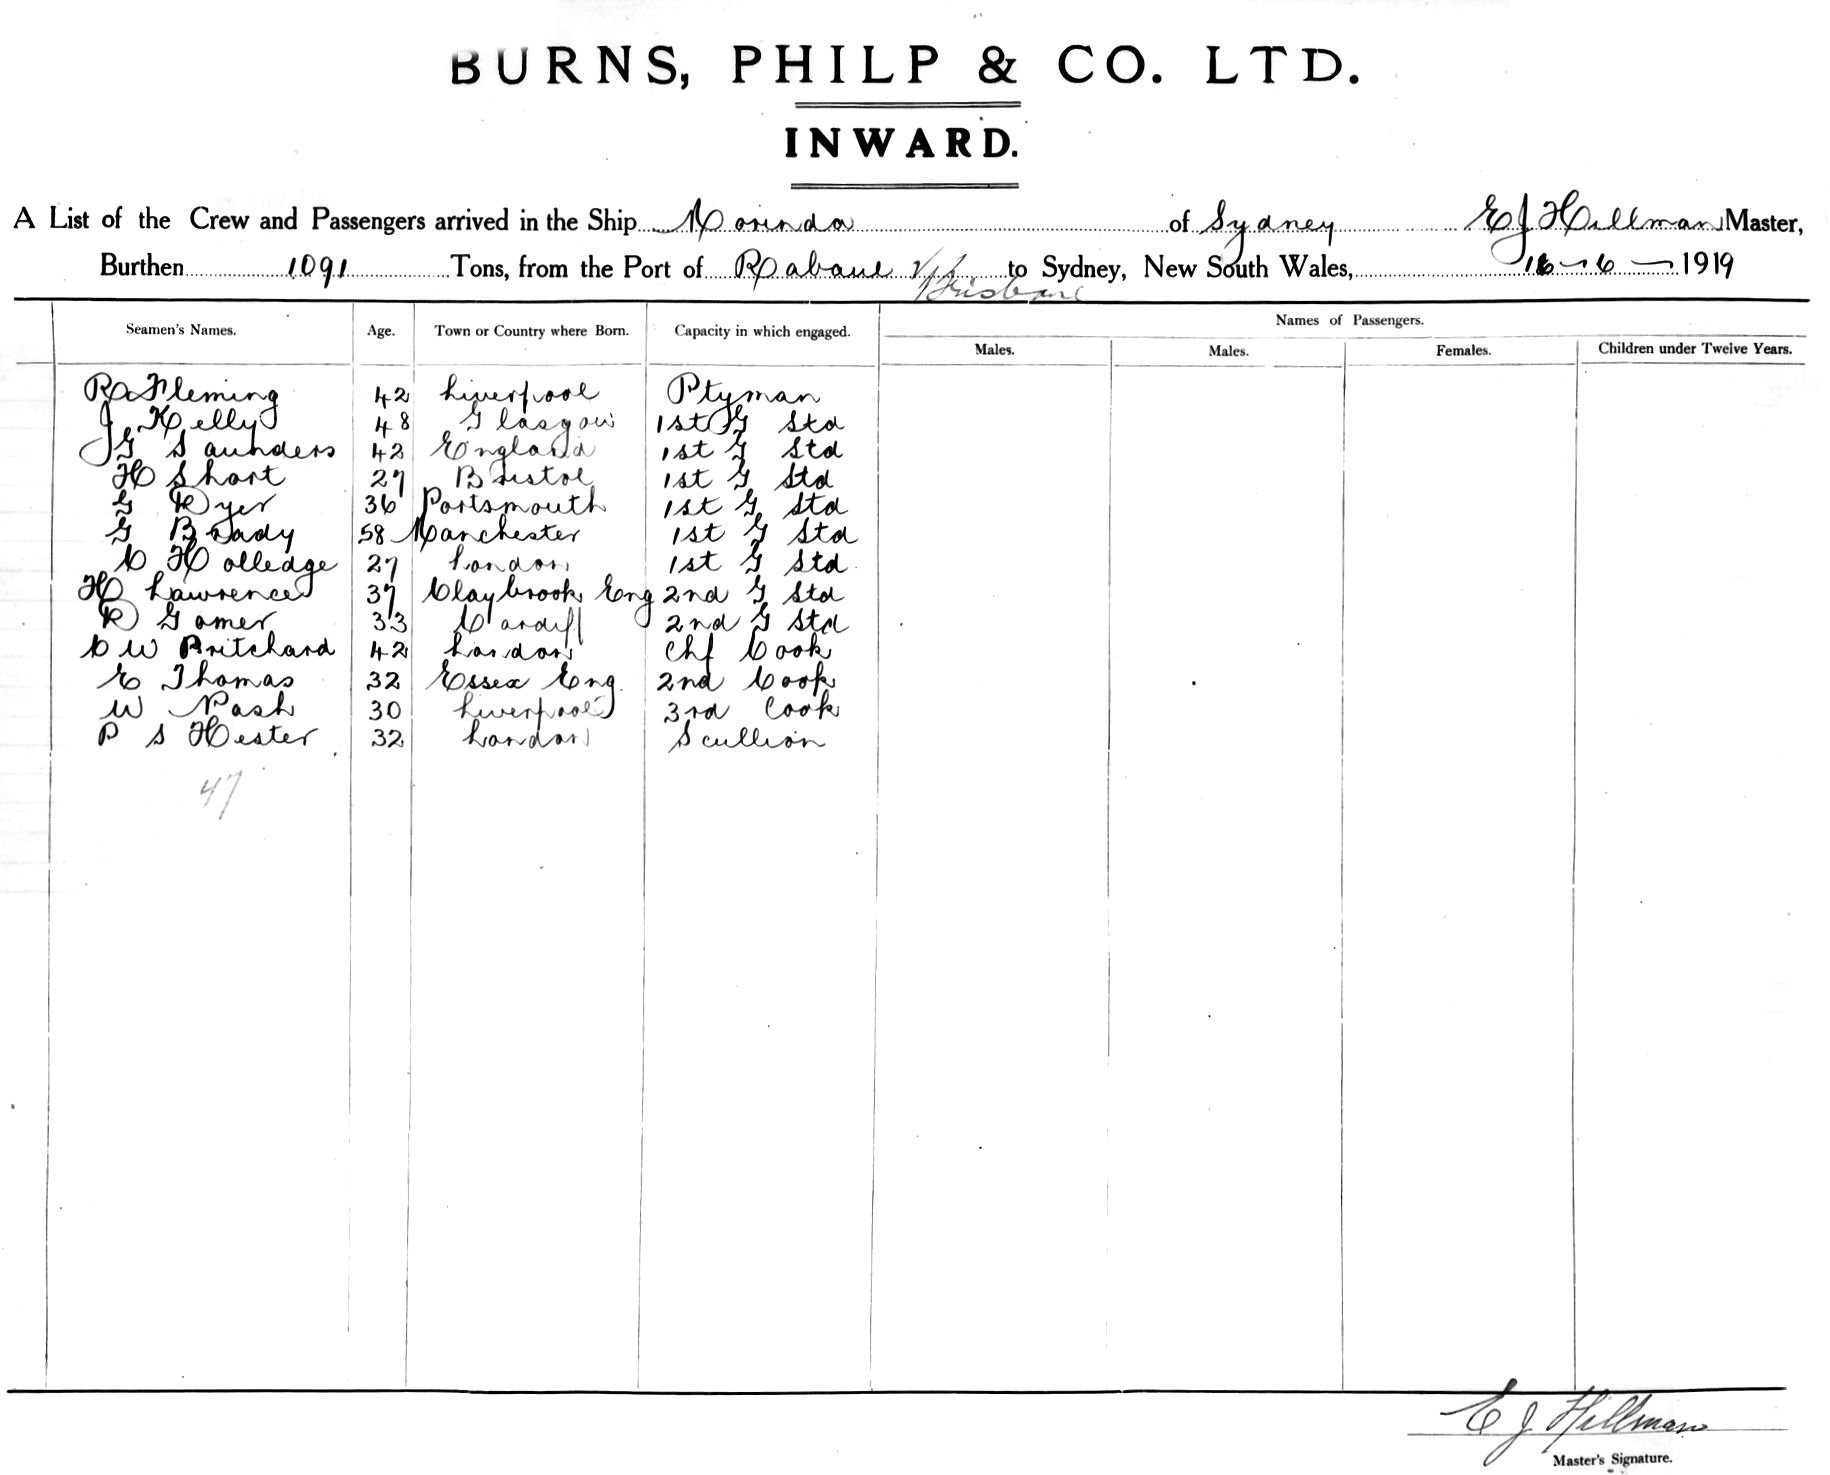 BURNS, PHILP & CO. LTD.
INWARD.
A List of the Crew and Passengers arrived in the Ship Morinda of Sydney E J Hillman Master,
Burthen 1091 Tons, from the Port of Rabaul via Brisbane to Sydney, New South Wales, 16-6-1919
Seamen's Names. Age. Town or Country where Born. Capacity in which engaged. Names of Passengers.
Males. Males. Females. Children under Twelve Years.
R Fleming 42 Liverpool Ptyman
J Kelly 48 Glasgow 1st G Std
J G Saunders 42 England 1st G Std
H Short 27 Bristol 1st G Std
G Dyer 36 Portsmouth 1st G Std
G Brady 58 Manchester 1st G Std
C Holledge 27 London 1st G Std
H Lawrence 37 Claybrook Eng 2nd G Std
R Gomer 33 Cardiff 2nd G Std
C W Pritchard 42 London Chf Cook
E Thomas 32 Essex Eng. 2nd Cook
W Nash 30 Liverpool 3rd Cook
P S Hester 32 London Scullion
47
E J Hillman
Master's Signature.